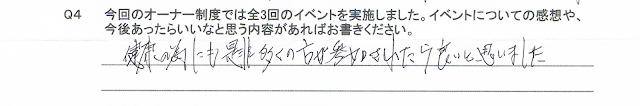 Q4 今回のオーナー制度では全3回のイベントを実施しました。イベントについての感想や、
今後あったらいいなと思う内容があればお書きください。
健康の為にも是非多くの方が参加されたら良いと思いました